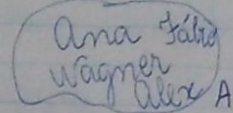 Ana Fábio
Wagner
Alex A